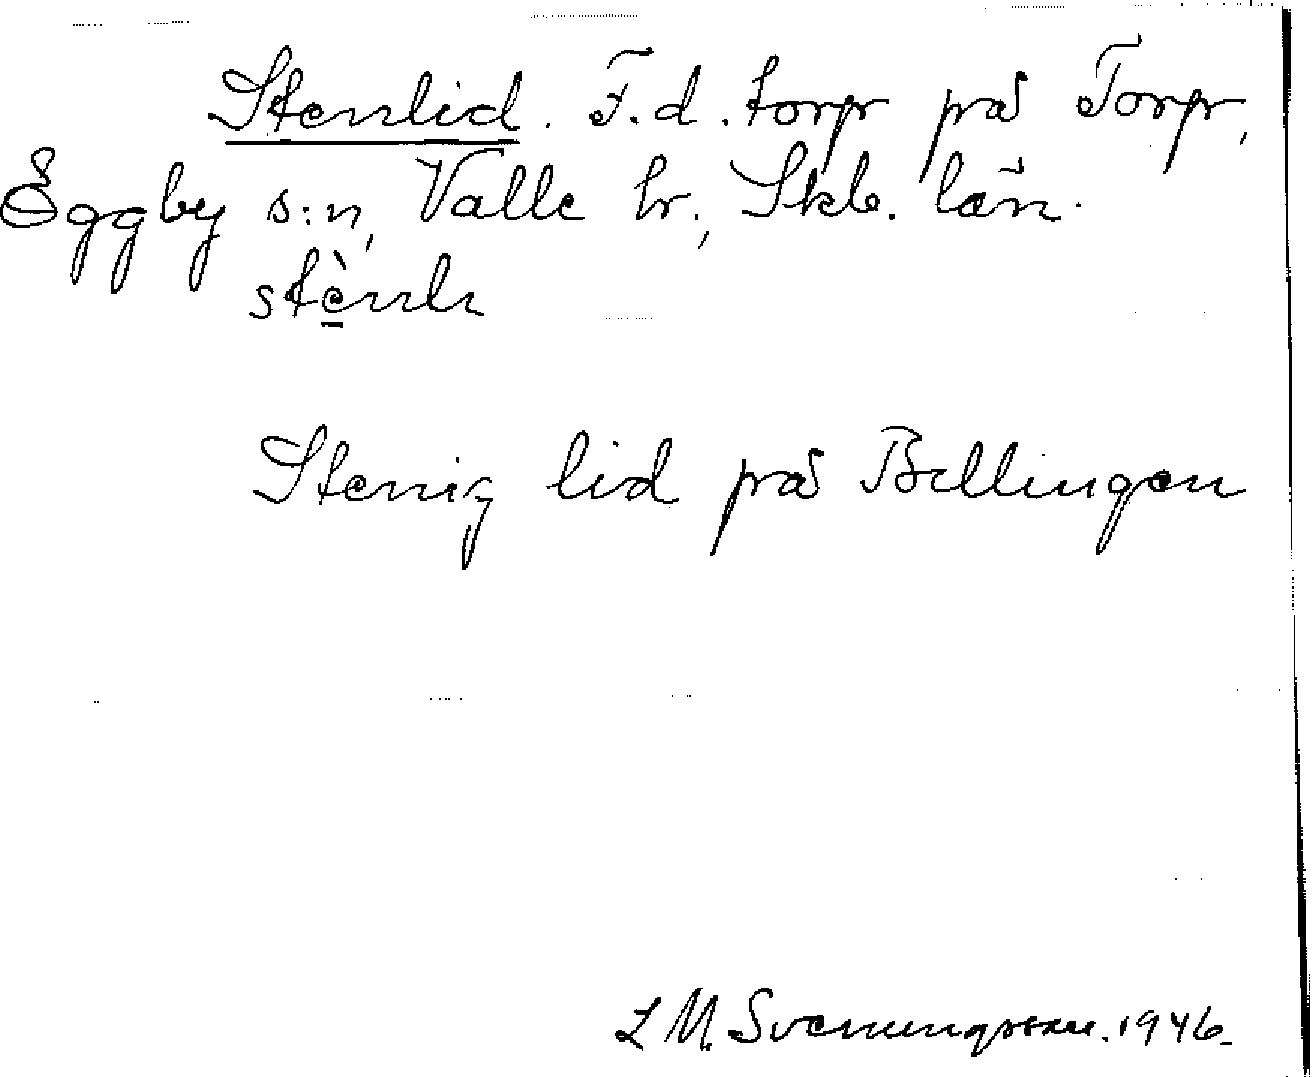 Stenlid. F.d. torp på Torp,
Eggby s:n, Valle hr, Skb. län.
stènli
Stenig lid på Billingen
L M. Svenungsson. 1946.